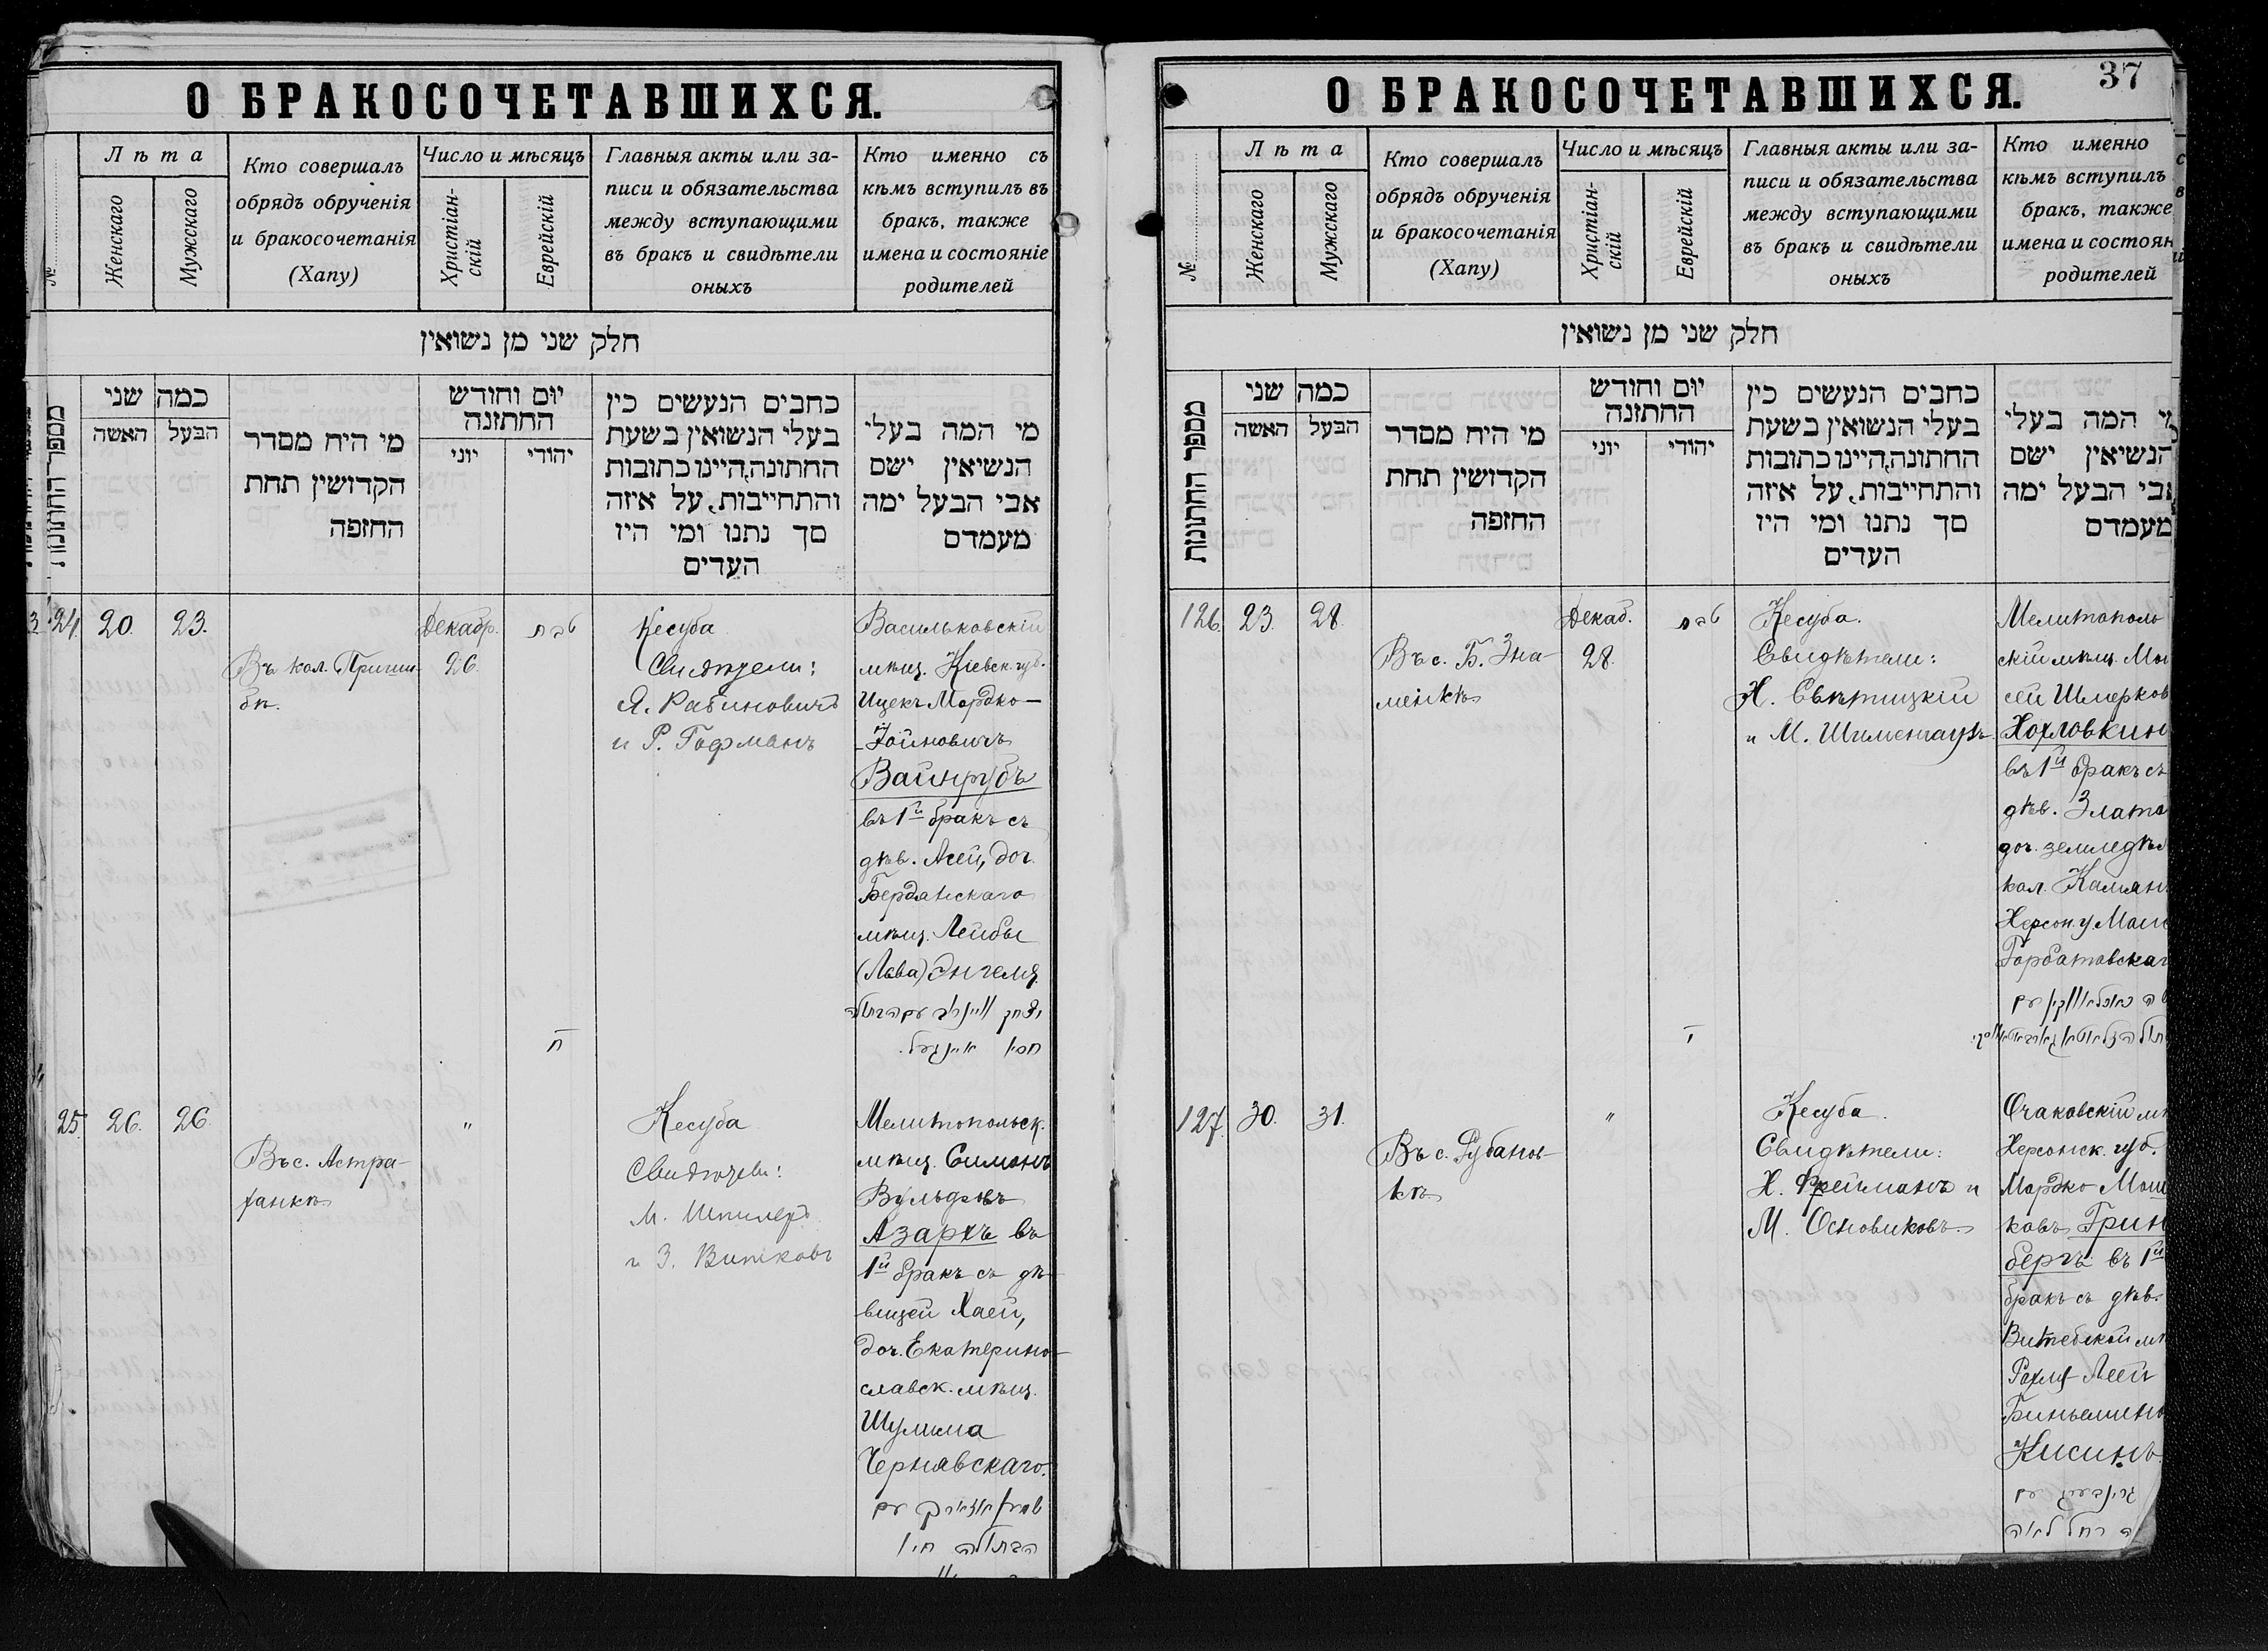 О БРАКОСОЧЕТАВШИХСЯ.
№
Лѣта
Женскаго
Мужскаго
Кто совершалъ
обрядъ обрученія
и бракосочетанія
(Хапу)
Число и мѣсяцъ
Христіан-
скій
Еврейскій
Главныя акты или за-
писи и обязательства
между вступающими
въ бракъ и свидѣтели
оныхъ
Кто именно съ
кѣмъ вступилъ въ
бракъ, также
имена и состояніе
родителей
חלק שני מן נשואין
מספר החתונות
כמה שני
האשה
הבעל
מי היח מסדר
הקדושין תחת
החזפה
יום וחודש
החתזנה
יוני
יהודי
כחבים הנעשים כין
בעלי הנשואין בשעת
החתונה,היינו כתובות
והתחייבות, על איזה
סך נתנו ומי היז
העדים
מי המה בעלי
הנשיאין ישם
אבי הבעל ימה
מעמדם
24.
20.
23.
Въ кол. Пришибѣ.
Декабр.
26.
טבת
ח
Кесуба
Свидѣтели:
Я. Рабиновичъ
и Р. Гофманъ
Васильковскій
мѣщ. Кіевск. губ.
Ицекъ Мордко-
Іойновичъ
Вайнрубъ
въ 1й бракъ съ
дѣв. Асей, доч.
Бердянскаго
мѣщ. Лейбы
(Лева) Энгеля.
25.
26.
26.
Въ с. Астра-
ханкѣ
"
Кесуба
Свидѣтели:
М. Шпилеръ
и З. Витковъ
Мелитопольск.
мѣщ. Симонъ
Вульфовъ
Азархъ въ
1й бракъ съ дѣ-
вицей Хаей,
доч. Екатерино-
славск. мѣщ.
Шулима
Чернявскаго.
הבתולה
О БРАКОСОЧЕТАВШИХСЯ.
37
№
Лѣта
Женскаго
Мужскаго
Кто совершалъ
обрядъ обрученія
и бракосочетанія
(Хапу)
Число и мѣсяцъ
Христіан-
скій
Еврейскій
Главныя акты или за-
писи и обязательства
между вступающими
въ бракъ и свидѣтели
оныхъ
Кто именно
кѣмъ вступилъ
бракъ, также
имена и состоян
родителей
חלק שני מן נשואין
מספר החתונות
כמה שני
האשה
הבעל
מי היח מסדר
הקדושין תחת
החזפה
יום וחודש
החתזנה
יוני
יהודי
כחבים הנעשים כין
בעלי הנשואין בשעת
החתונה,היינו כתובות
והתחייבות, על איזה
סך נתנו ומי היז
העדים
מי המה בעלי
הנשיאין ישם
אבי הבעל ימה
מעמדם
126.
23.
28.
Въ с. Б. Зна-
менкѣ
Декаб.
28.
טבת
י
Кесуба.
Свидѣтели:
Х. Свѣтицкій
Мелитополь
скій мѣщ. Мои
сей Шмерков
Хохловкин
въ 1й бракъ съ
дѣв. Злата
доч. земледѣл
кол. Камян
Херсон. у
Горбатовскаг
127.
30.
31.
Въ с. Рубанов-
кѣ
"
Кесуба.
Свидѣтели:
Х. Фрейманъ и
М. Основиковъ.
Очаковскій мѣ
Херсонск. губ.
Мордко Мош
ковъ Грин
бергъ въ 1й
бракъ съ дѣв.
Витебской мѣ
Рохля-Лея
Биньямино
Кисинъ.
גרינבערג עם
רחל לאה